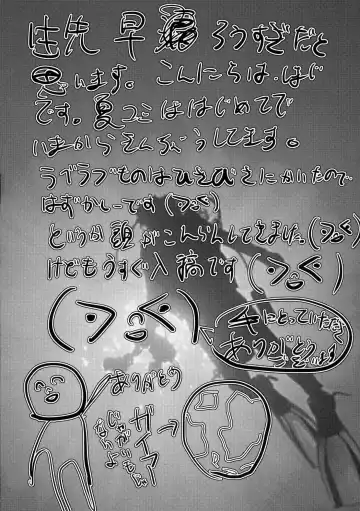 早
ろうすぎだと
思います。こんにちは、はじ
です。夏コミははじめてで
いまからきんちょうしてます。
ラブラブものはひさびさにかいたので
はずかしーです(つ﹏<)
というか頭がこんらんしてきました。
けどもうすぐ入稿です
手にとっていただき
ありがとう
ございます
ありがとう
ガイア
じゃがいもじゃ
ないよ